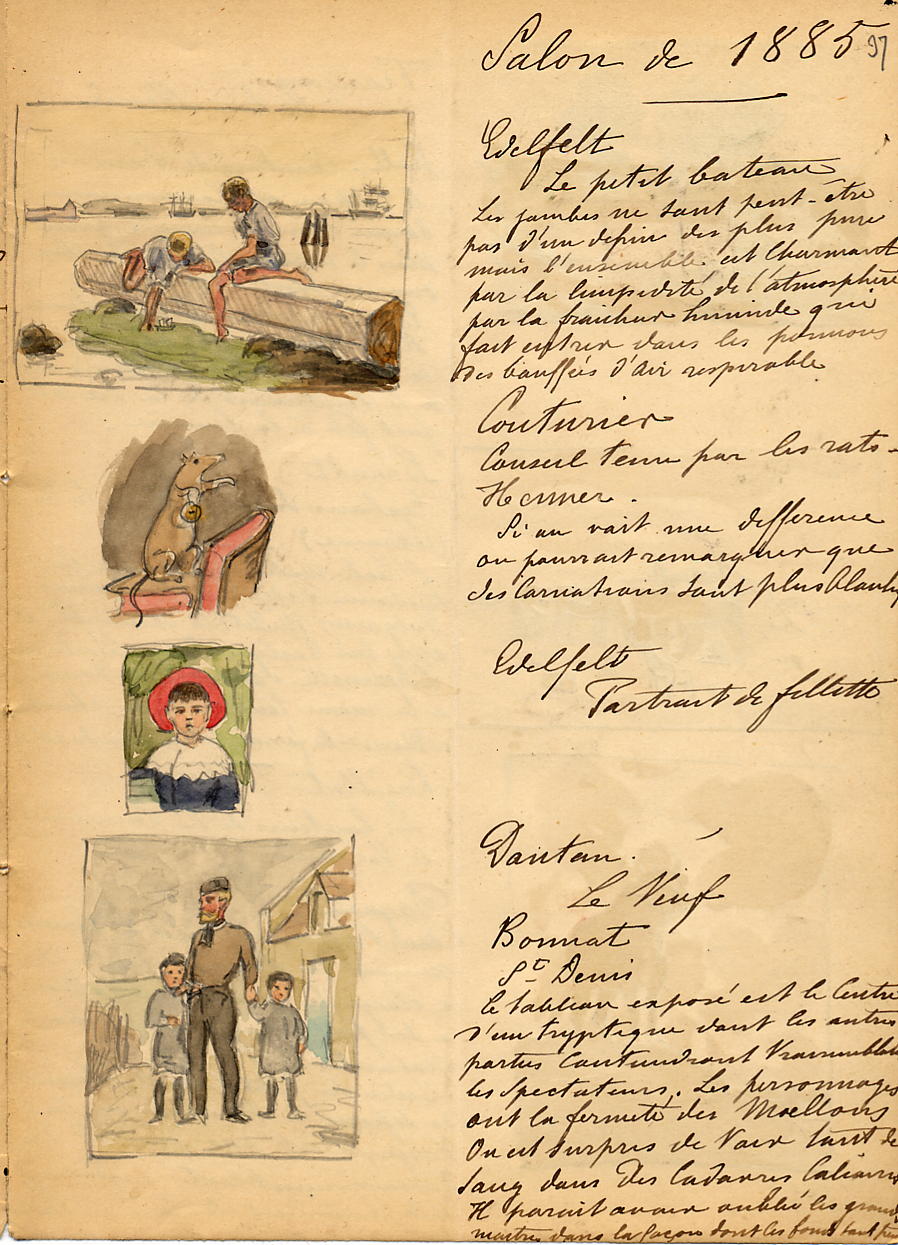 Salon de 1885
97
Edelfelt
Le petit bateau
Les jambes ne sont peut-être
pas d'un dessin des plus purs
mais l'ensemble est charmant
par la limpidité de l'atmosphère
par la fraicheur humide qui
fait entrer dans les poumons
des bouffées d'air respirable
Couturier
Conseil tenu par les rats -
Henner.
Si on voit une difference
on pourrait remarquer que
des carnations sont plus
Edelfelt
Portrait de fillette
Dantan.
Le Veuf
Bonnat
St Denis
Le tableau exposé est le centre
d'un tryptique dont les autres
parties contiendront
les spectateurs. Les personnages
ont la fermeté des Moellons
On est surpris de voir tant de
sang dans des cadavres
Il parait avoir oublié les grands
maitres dans la façon dont les fonds sont